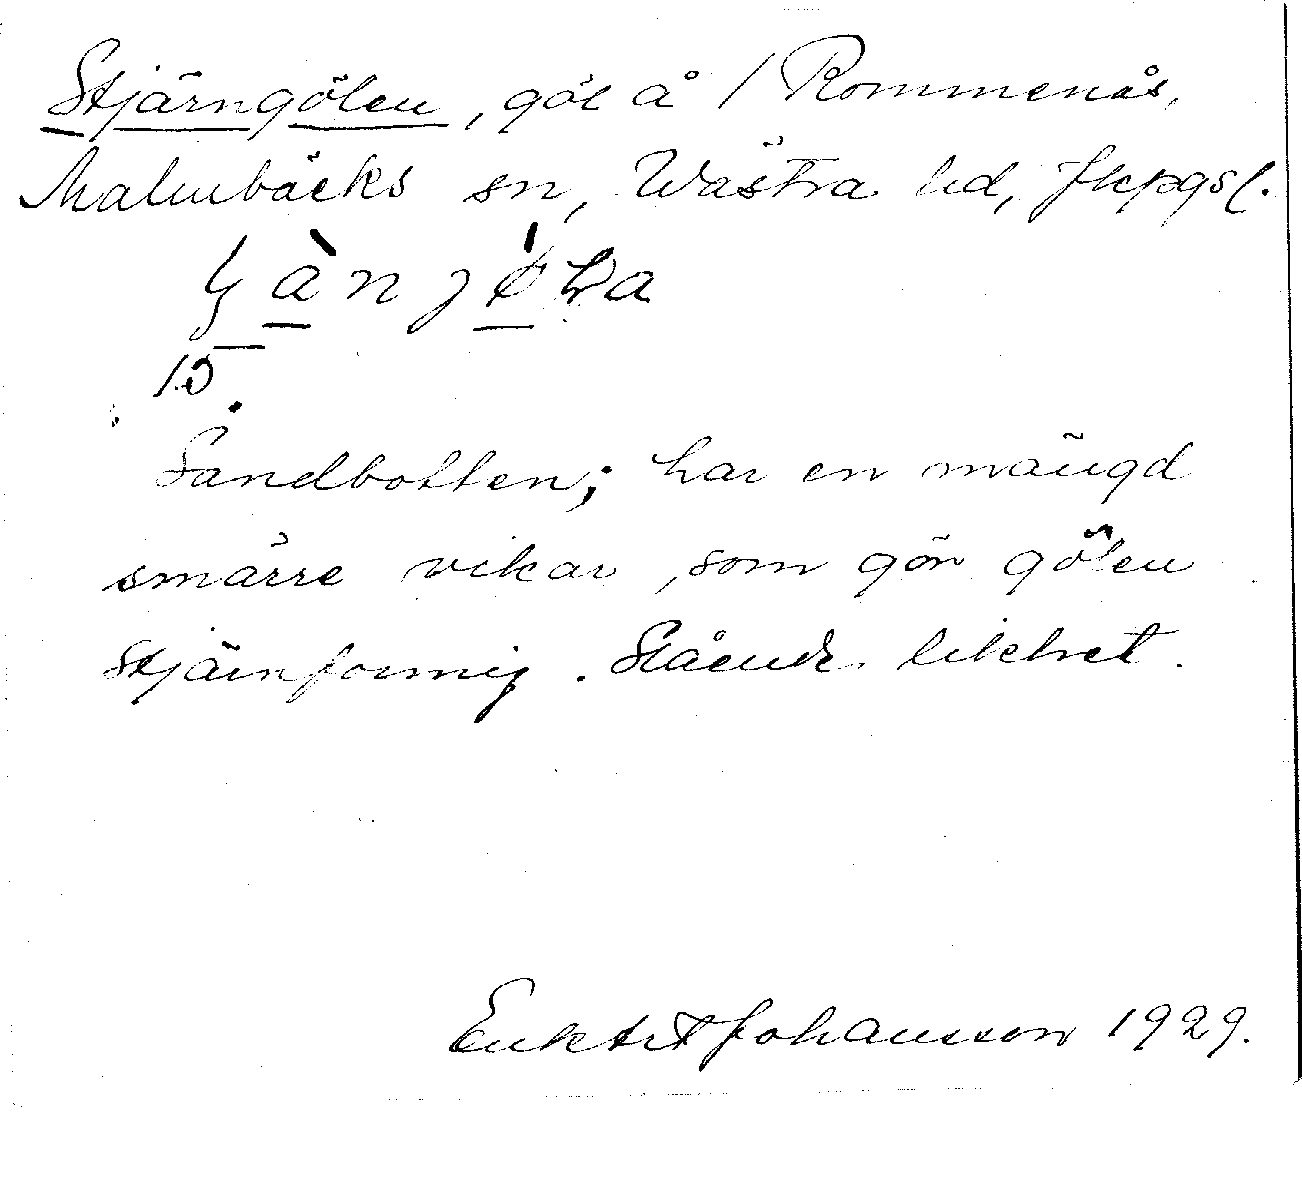 Stjärngölen, göl å / Rommenås,
Malmbäcks sn, Västra hd, Jkpgs l.
15
Sandbotten; har en mängd
smärre vikar, som gör gölen
stjärnformig. Stående
Johansson 1929.